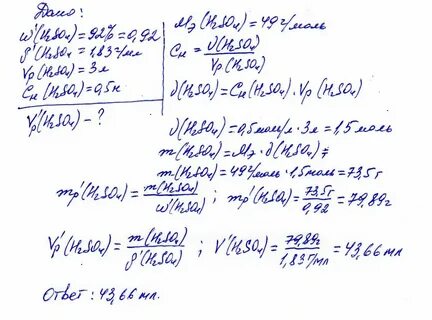 Дано:
ω'(H₂SO₄)=92%=0,92
ρ'(H₂SO₄)=1,83г/мл
Vр(H₂SO₄)=3л
Cн(H₂SO₄)=0,5н
Vр'(H₂SO₄)-?
Mэ(H₂SO₄)=49г/моль
Cн = ν(H₂SO₄)/Vр(H₂SO₄)
ν(H₂SO₄)=Cн(H₂SO₄)·Vр(H₂SO₄)
ν(H₂SO₄)=0,5моль/л·3л=1,5моль
m(H₂SO₄)=Mэ·ν(H₂SO₄);
m(H₂SO₄)=49г/моль·1,5моль=73,5г
mр'(H₂SO₄)=m(H₂SO₄)/ω'(H₂SO₄); mр'(H₂SO₄)=73,5г/0,92=79,89г
Vр'(H₂SO₄)=m(H₂SO₄)/ρ'(H₂SO₄); V'(H₂SO₄)=79,89г/1,83г/мл=43,66мл
Ответ: 43,66 мл.